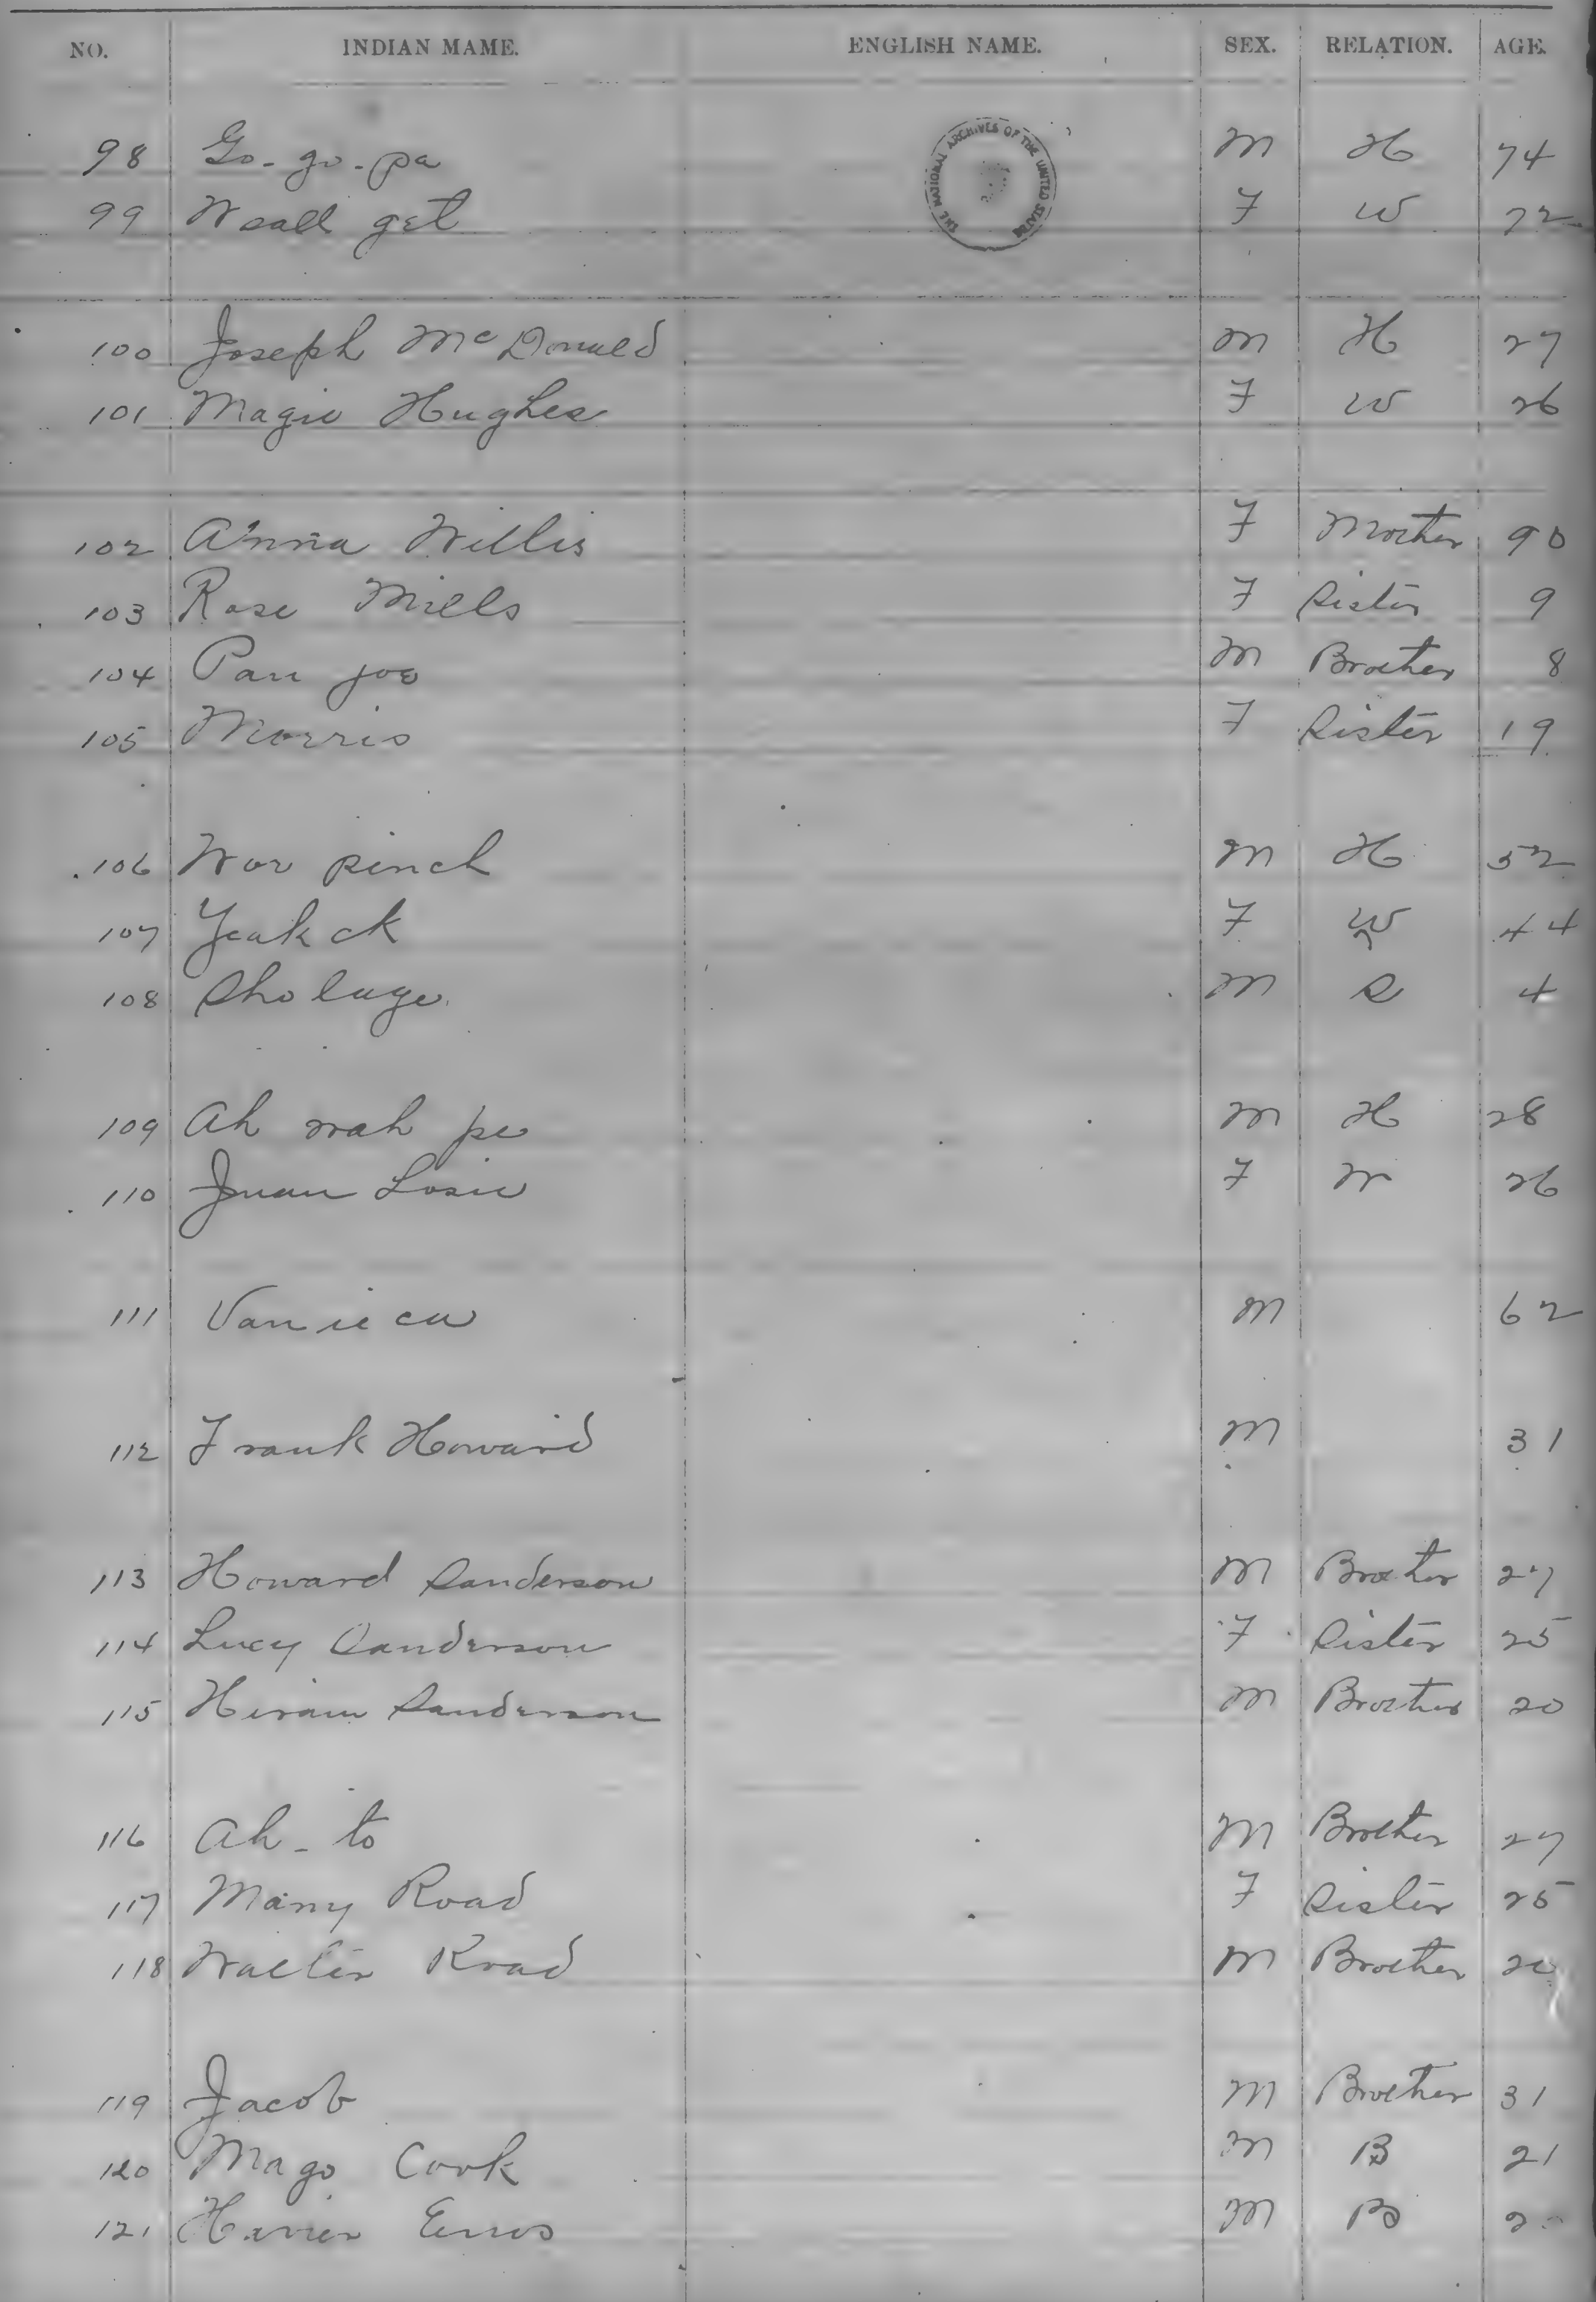 NO. INDIAN MAME. ENGLISH NAME. SEX. RELATION. AGE.
THE NATIONAL ARCHIVES OF THE UNITED STATES
98 Go-go-pa M H 74
99 Wall get F W 72
100 Joseph McDonald M H 27
101 Magie Hughes F W 26
102 Anna Willis F Mother 90
103 Rose Mills F Sister 9
104 Pau joe M Brother 8
105 Morris F Sister 19
106 Wor pinch M H 52
107 Yeak ck F W 44
108 Sho luge M S 4
109 Ah wah pe M H 28
110 Juan Losie F W 26
111 M 62
112 Frank Howard M 31
113 Howard Sanderson M Brother 27
114 Lucy Sanderson F Sister 25
115 Hiram Sanderson M Brother 20
116 Ah-to M Brother 27
117 Many Road F Sister 25
118 Walter Road M Brother
119 Jacob M Brother 31
120 Mago Cook M B 21
121 M B